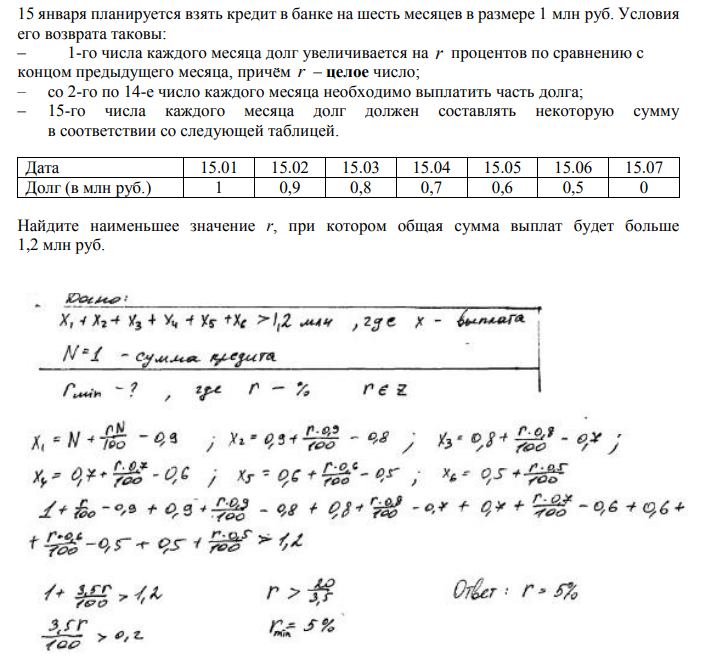 15 января планируется взять кредит в банке на шесть месяцев в размере 1 млн руб. Условия
его возврата таковы:
– 1-го числа каждого месяца долг увеличивается на r процентов по сравнению с
концом предыдущего месяца, причём r – целое число;
– со 2-го по 14-е число каждого месяца необходимо выплатить часть долга;
– 15-го числа каждого месяца долг должен составлять некоторую сумму
в соответствии со следующей таблицей.
Дата 15.01 15.02 15.03 15.04 15.05 15.06 15.07
Долг (в млн руб.) 1 0,9 0,8 0,7 0,6 0,5 0
Найдите наименьшее значение r, при котором общая сумма выплат будет больше
1,2 млн руб.
Дано:
X₁ + X₂ + X₃ + X₄ + X₅ + X₆ > 1,2 млн , где x - выплата
N = 1 - сумма кредита
r_min - ? , где r - % r ∈ Z
X₁ = N + rN/100 - 0,9 ; X₂ = 0,9 + r·0,9/100 - 0,8 ; X₃ = 0,8 + r·0,8/100 - 0,7 ;
X₄ = 0,7 + r·0,7/100 - 0,6 ; X₅ = 0,6 + r·0,6/100 - 0,5 ; X₆ = 0,5 + r·0,5/100
1 + r/100 - 0,9 + 0,9 + r·0,9/100 - 0,8 + 0,8 + r·0,8/100 - 0,7 + 0,7 + r·0,7/100 - 0,6 + 0,6 +
+ r·0,6/100 - 0,5 + 0,5 + r·0,5/100 > 1,2
1 + 3,5r/100 > 1,2 r > 20/3,5 Ответ : r = 5%
3,5r/100 > 0,2 r_min = 5%